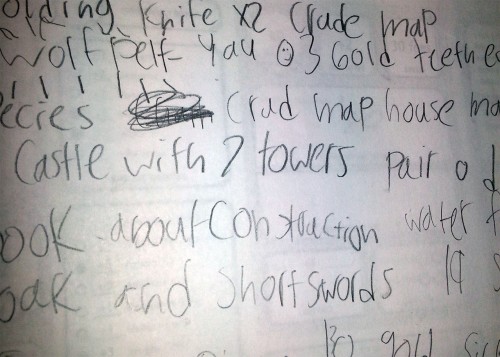 olding Knife x2 Crude map
Wolf Pelt 3 Gold teeth
ecies Crud map house ma
Castle with 7 towers pair o
ook about Construction water
oak and Shortswords